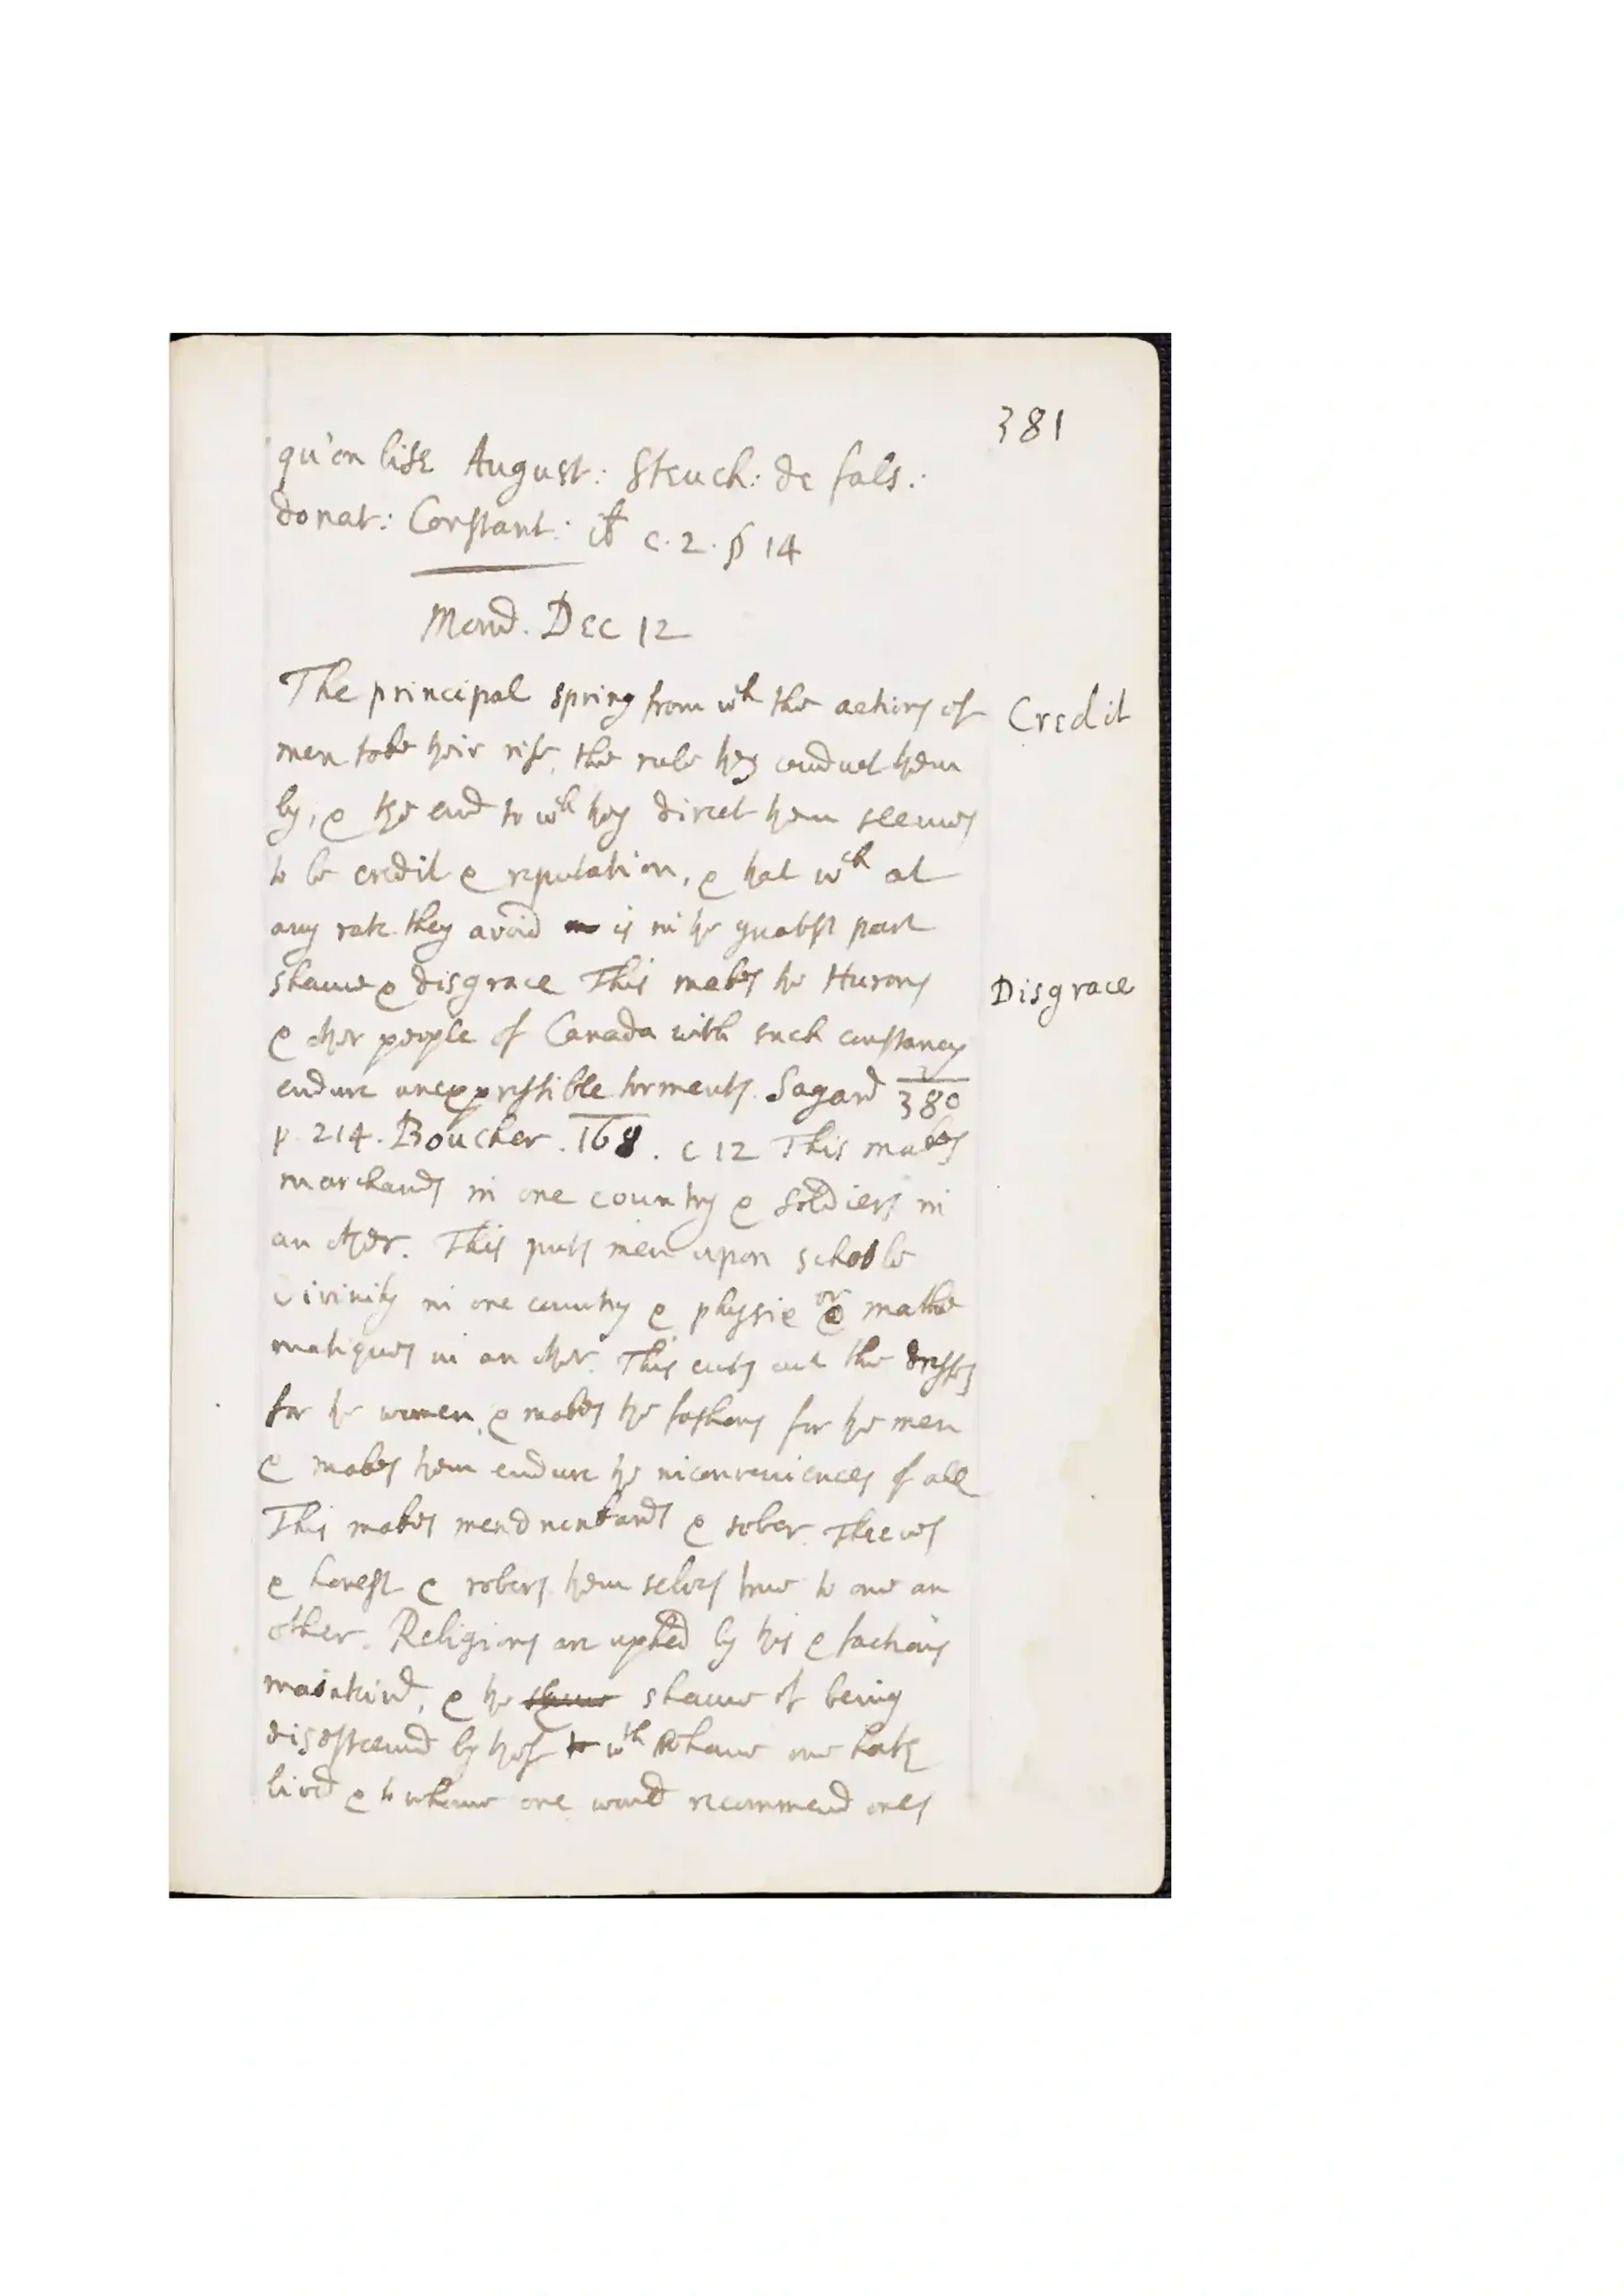 381
qu'on lise August: Steuch: de fals:
donat: Constant: ib c. 2. § 14
Mond. Dec 12
The principal spring from wch the actions of
Credit
men take their rise, the rule they conduct them
by, & the end to wch they direct them seemes
to be credit & reputation, & that wch at
any rate they avoid is in the greatest part
shame & disgrace This makes the Hurons
Disgrace
& other people of Canada with such constancy
endure unexpressible torments Sagard 380
p. 214. Boucher. 168. c 12 This makes
marchands in one country & soldiers in
an other. This puts men upon schoole
Divinity in one country & physic or mathe
matiques in an other. This cuts out the dresses
for the women, & makes the fashons for the men
& makes them endure the inconveniences of all
This makes men drunkards & sober Theeves
& honest & robers them selves true to one an
other. Religions are upheld by this & factions
mainteind, & the shame shame of being
disesteemd by those to wth whome one hath
lived & to whome one would recommend ones